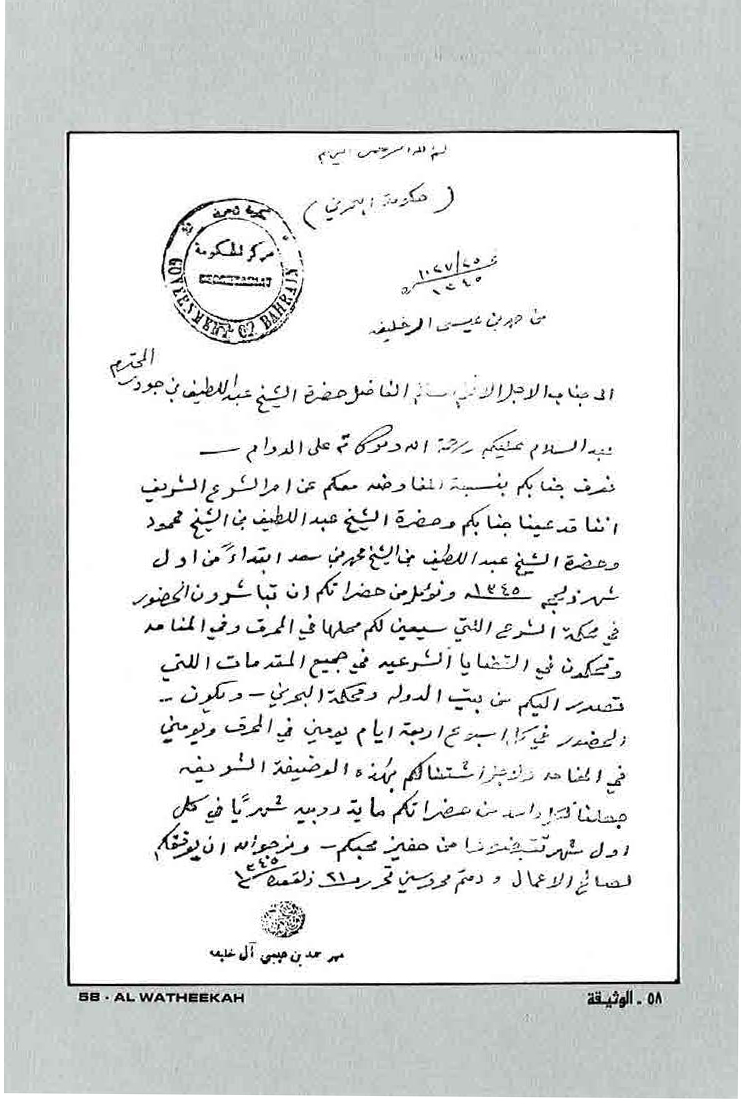 بسم الله الرحمن الرحيم
(حكومة البحرين)
حكومة البحرين
مركز الحكومة
GOVERNMENT OF BAHRAIN
١٠٢٧/٢٥
١٣٤٥
من حمد بن عيسى ال خليفه
الى جناب الاجل الافخم الفاضل حضرة الشيخ عبد اللطيف بن جودر المحترم
بعد السلام عليكم ورحمة الله وبركاته على الدوام
نعرف جنابكم بنسبة المفاوضه معكم عن امر الشرع الشريف
اننا قد عينا جنابكم وحضرة الشيخ عبد اللطيف بن الشيخ محمود
وحضرة الشيخ عبد اللطيف بن الشيخ محمد بن سعد ابتداءً من اول
شهر ذيلحجه ١٣٤٥ ونؤمل من حضراتكم ان تباشرون الحضور
في محكمة الشرع اللتي سيعين لكم محلها في المحرق وفي المنامه
وتحكمون في القضايا الشرعيه في جميع المقدمات اللتي
تصدر اليكم من بيت الدوله ومحكمة البحرين - ويكون -
الحضور في كل اسبوع اربعة ايام يومين في المحرق ويومين
في المنامه ولاجل اشتغالكم بهذه الوضيفة الشريفه
جعلنا لكل واحد من حضراتكم ماية روبيه شهريًا في كل
اول شهر تقبضونها من محبكم - ونرجو الله ان يوفقكم
لصالح الاعمال ودمتم محروسين تحرر ٢١ ذلقعده ١٣٤٥
مهر حمد بن عيسى آل خليفه
58 - AL WATHEEKAH
٥٨ - الوثيقة